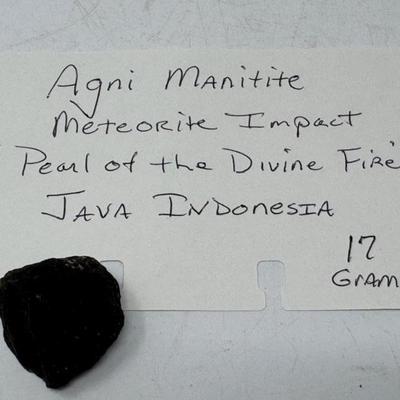 Agni Manitite
Meteorite Impact
Pearl of the Divine Fire
Java Indonesia
17
Gram